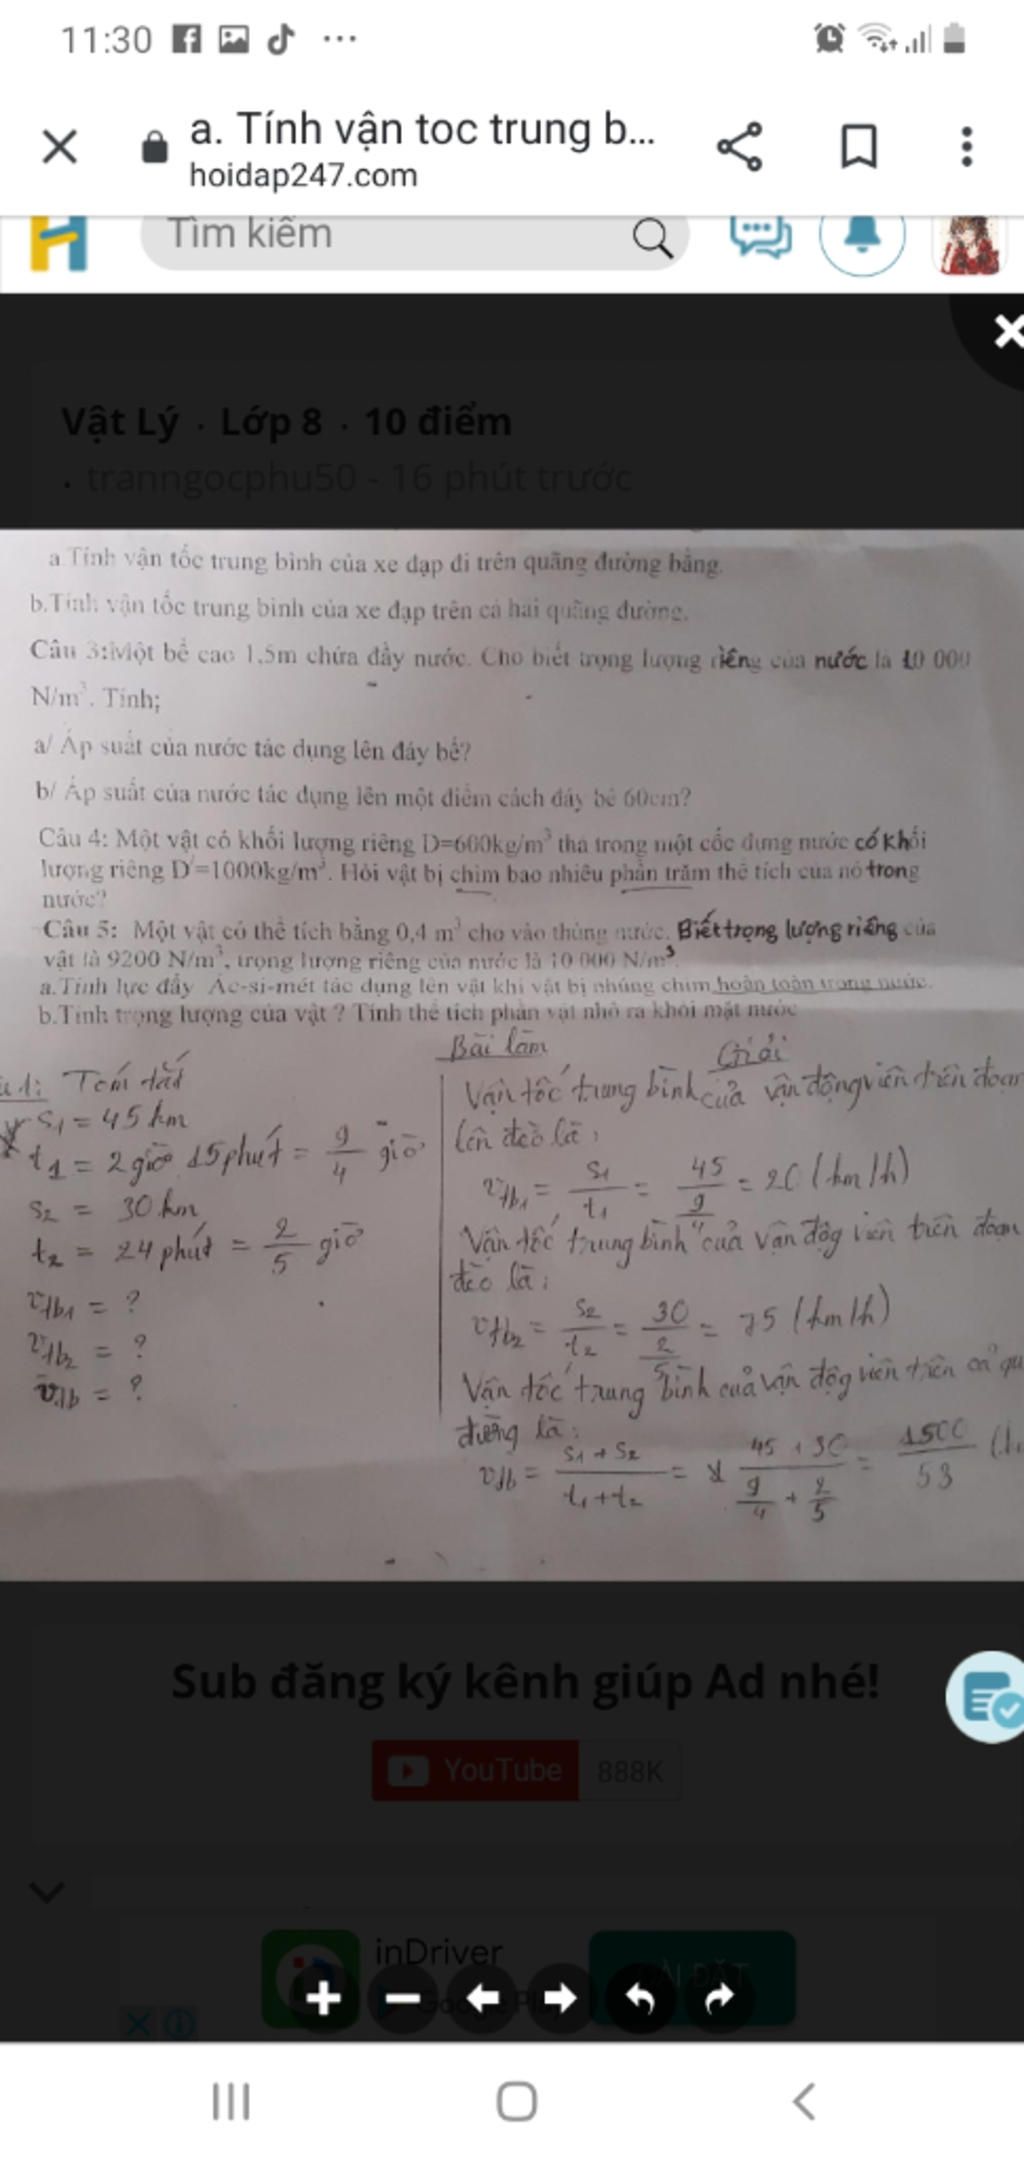 11:30
a. Tính vận toc trung b...
hoidap247.com
Tìm kiếm
Vật Lý · Lớp 8 · 10 điểm
· tranngocphu50 - 16 phút trước
a.Tính vận tốc trung bình của xe đạp đi trên quãng đường bằng.
b.Tính vận tốc trung bình của xe đạp trên cả hai quãng đường.
Câu 3:Một bể cao 1,5m chứa đầy nước. Cho biết trọng lượng riêng của nước là 10 000
N/m³. Tính;
a/ Áp suất của nước tác dụng lên đáy bể?
b/ Áp suất của nước tác dụng lên một điểm cách đáy bể 60cm?
Câu 4: Một vật có khối lượng riêng D=600kg/m³ thả trong một cốc đựng nước có khối
lượng riêng D'=1000kg/m³. Hỏi vật bị chìm bao nhiêu phần trăm thể tích của nó trong
nước?
Câu 5: Một vật có thể tích bằng 0,4 m³ cho vào thùng nước. Biết trọng lượng riêng của
vật là 9200 N/m³, trọng lượng riêng của nước là 10 000 N/m³.
a.Tính lực đẩy Ác-si-mét tác dụng lên vật khi vật bị nhúng chìm hoàn toàn trong nước.
b.Tính trọng lượng của vật ? Tính thể tích phần vật nhô ra khỏi mặt nước
Bài làm
Giải
1: Tóm tắt
S₁ = 45 km
t₁ = 2 giờ 15 phút = 9/4 giờ
S₂ = 30 km
t₂ = 24 phút = 2/5 giờ
vtb₁ = ?
vtb₂ = ?
vtb = ?
Vận tốc trung bình của vận động viên trên đoạn
lên đèo là:
vtb₁ = S₁/t₁ = 45/(9/4) = 20 (km/h)
Vận tốc trung bình của vận độg viên trên đoạn
đèo là:
vtb₂ = S₂/t₂ = 30/(2/5) = 75 (km/h)
Vận tốc trung bình của vận độg viên trên cả qu
đường là:
vtb = (S₁ + S₂)/(t₁ + t₂) = (45 + 30)/(9/4 + 2/5) = 1500/53
Sub đăng ký kênh giúp Ad nhé!
YouTube 888K
inDriver
CÀI ĐẶT